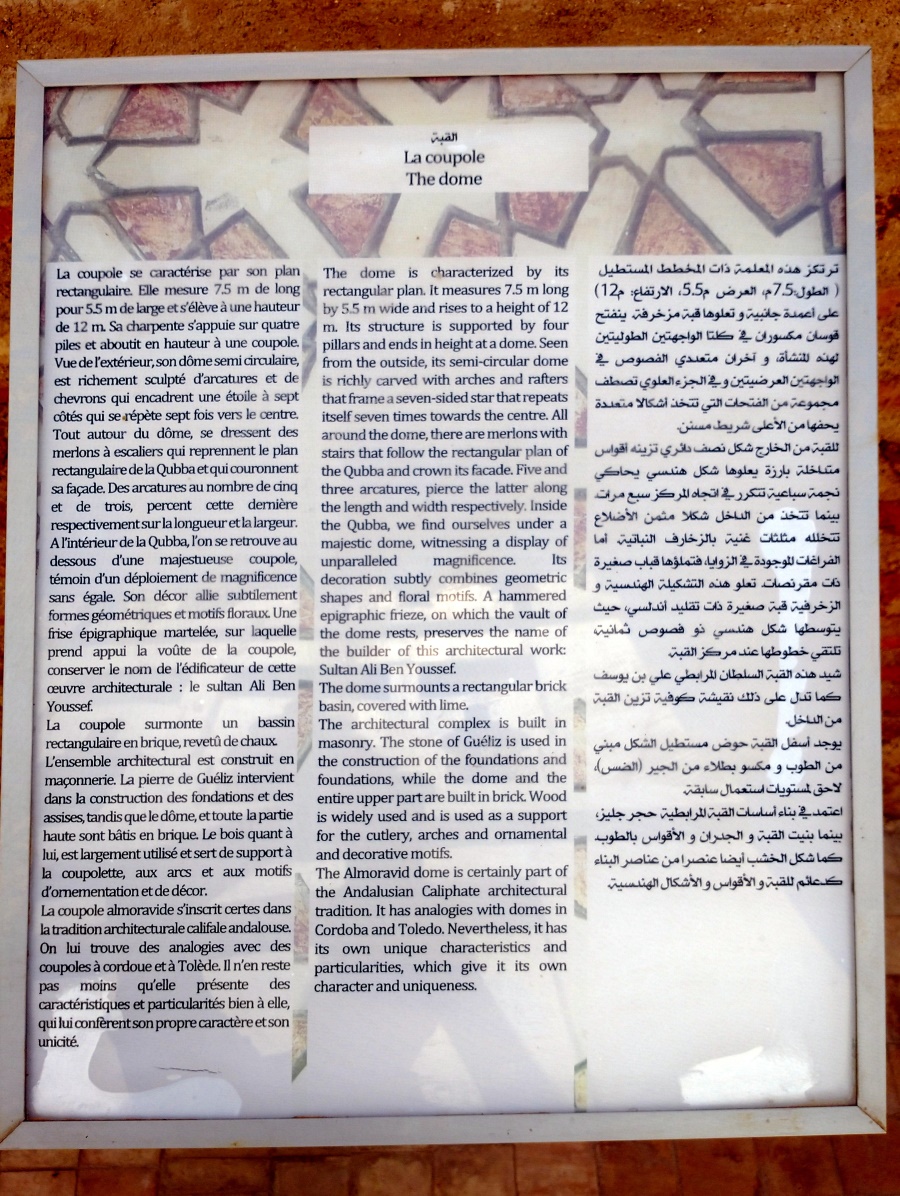 القبة
La coupole
The dome
La coupole se caractérise par son plan
rectangulaire. Elle mesure 7.5 m de long
pour 5.5 m de large et s'élève à une hauteur
de 12 m. Sa charpente s'appuie sur quatre
piles et aboutit en hauteur à une coupole.
Vue de l'extérieur, son dôme semi circulaire,
est richement sculpté d'arcatures et de
chevrons qui encadrent une étoile à sept
côtés qui se répète sept fois vers le centre.
Tout autour du dôme, se dressent des
merlons à escaliers qui reprennent le plan
rectangulaire de la Qubba et qui couronnent
sa façade. Des arcatures au nombre de cinq
et de trois, percent cette dernière
respectivement sur la longueur et la largeur.
A l'intérieur de la Qubba, l'on se retrouve au
dessous d'une majestueuse coupole,
témoin d'un déploiement de magnificence
sans égale. Son décor allie subtilement
formes géométriques et motifs floraux. Une
frise épigraphique martelée, sur laquelle
prend appui la voûte de la coupole,
conserver le nom de l'édificateur de cette
œuvre architecturale : le sultan Ali Ben
Youssef.
La coupole surmonte un bassin
rectangulaire en brique, revetû de chaux.
L'ensemble architectural est construit en
maçonnerie. La pierre de Guéliz intervient
dans la construction des fondations et des
assises, tandis que le dôme, et toute la partie
haute sont bâtis en brique. Le bois quant à
lui, est largement utilisé et sert de support à
la coupolette, aux arcs et aux motifs
d'ornementation et de décor.
La coupole almoravide s'inscrit certes dans
la tradition architecturale califale andalouse.
On lui trouve des analogies avec des
coupoles à cordoue et à Tolède. Il n'en reste
pas moins qu'elle présente des
caractéristiques et particularités bien à elle,
qui lui confèrent son propre caractère et son
unicité.
The dome is characterized by its
rectangular plan. It measures 7.5 m long
by 5.5 m wide and rises to a height of 12
m. Its structure is supported by four
pillars and ends in height at a dome. Seen
from the outside, its semi-circular dome
is richly carved with arches and rafters
that frame a seven-sided star that repeats
itself seven times towards the centre. All
around the dome, there are merlons with
stairs that follow the rectangular plan of
the Qubba and crown its facade. Five and
three arcatures, pierce the latter along
the length and width respectively. Inside
the Qubba, we find ourselves under a
majestic dome, witnessing a display of
unparalleled magnificence. Its
decoration subtly combines geometric
shapes and floral motifs. A hammered
epigraphic frieze, on which the vault of
the dome rests, preserves the name of
the builder of this architectural work:
Sultan Ali Ben Youssef.
The dome surmounts a rectangular brick
basin, covered with lime.
The architectural complex is built in
masonry. The stone of Guéliz is used in
the construction of the foundations and
foundations, while the dome and the
entire upper part are built in brick. Wood
is widely used and is used as a support
for the cutlery, arches and ornamental
and decorative motifs.
The Almoravid dome is certainly part of
the Andalusian Caliphate architectural
tradition. It has analogies with domes in
Cordoba and Toledo. Nevertheless, it has
its own unique characteristics and
particularities, which give it its own
character and uniqueness.
ترتكز هذه المعلمة ذات المخطط المستطيل
( الطول:7.5م، العرض 5.5م، الارتفاع: 12م)
على أعمدة جانبية و تعلوها قبة مزخرفة. ينفتح
قوسان مكسوران في كلتا الواجهتين الطوليتين
لهذه المنشأة، و آخران متعددي الفصوص في
الواجهتين العرضيتين وفي الجزء العلوي تصطف
مجموعة من الفتحات التي تتخذ أشكالا متعددة
يحفها من الأعلى شريط مسنن.
للقبة من الخارج شكل نصف دائري تزينه أقواس
متداخلة بارزة يعلوها شكل هندسي يحاكي
نجمة سباعية تتكرر في اتجاه المركز سبع مرات.
بينما تتخذ من الداخل شكلا مثمن الأضلاع
تتخلله مثلثات غنية بالزخارف النباتية. أما
الفراغات الموجودة في الزوايا، فتملؤها قباب صغيرة
ذات مقرنصات. تعلو هذه التشكيلة الهندسية و
الزخرفية قبة صغيرة ذات تقليد أندلسي، حيث
يتوسطها شكل هندسي ذو فصوص ثمانية،
تلتقي خطوطها عند مركز القبة.
شيد هذه القبة السلطان المرابطي علي بن يوسف
كما تدل على ذلك نقيشة كوفية تزين القبة
من الداخل.
يوجد أسفل القبة حوض مستطيل الشكل مبني
من الطوب و مكسو بطلاء من الجير (الضس)،
لاحق لمستويات استعمال سابقة.
اعتمد في بناء أساسات القبة المرابطية حجر جليز،
بينما بنيت القبة و الجدران و الأقواس بالطوب.
كما شكل الخشب أيضا عنصرا من عناصر البناء
كدعائم للقبة و الأقواس و الأشكال الهندسية.